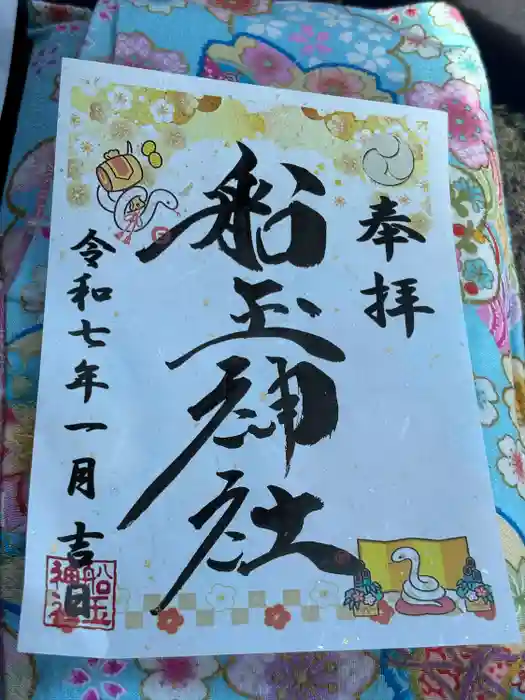 奉拝
船玉神社
令和七年一月吉日
船玉
神社